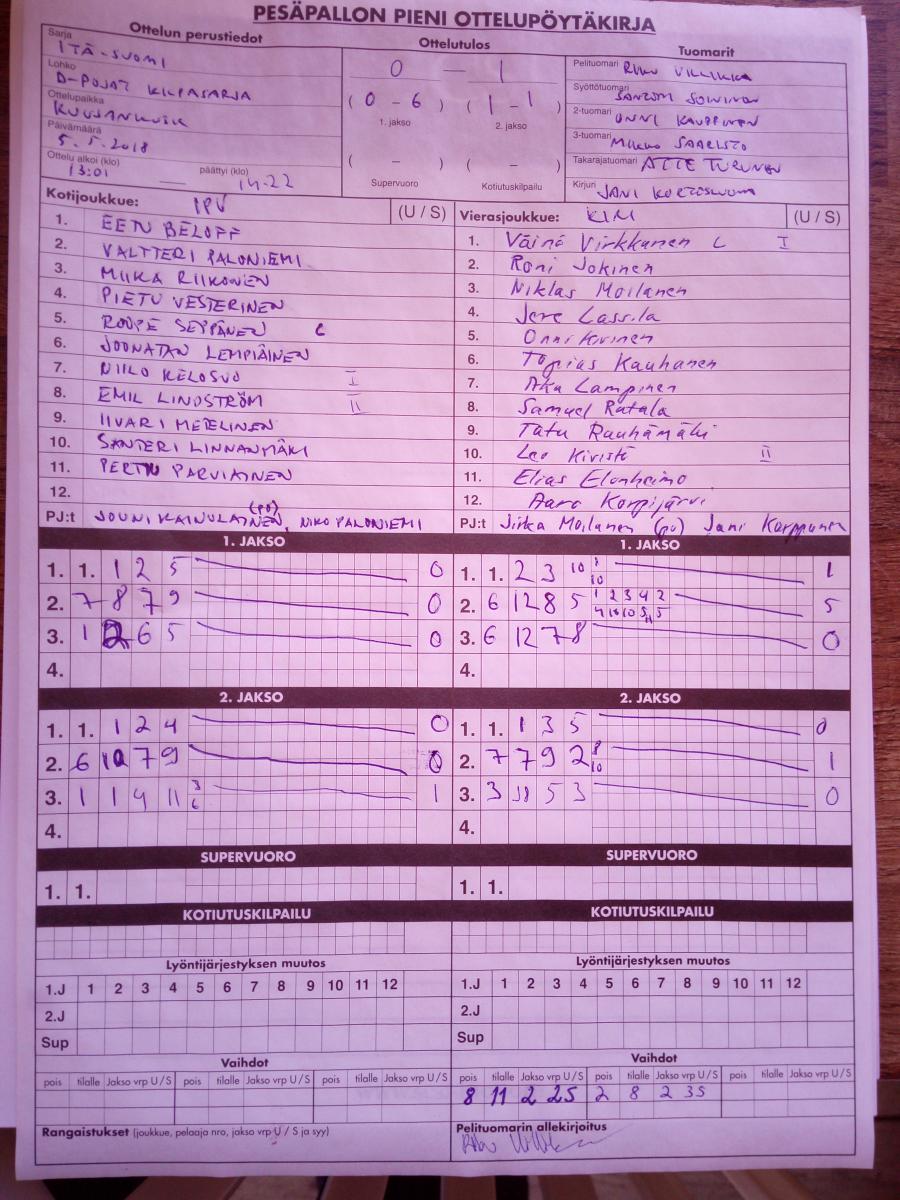 PESÄPALLON PIENI OTTELUPÖYTÄKIRJA
Ottelun perustiedot
Sarja
ITÄ-SUOMI
Lohko
D-POJAT KILPASARJA
Ottelupaikka
Päivämäärä
5.5.2018
Ottelu alkoi (klo) päättyi (klo)
13:01 — 14.22
Ottelutulos
0 — 1
(0 - 6) (1 - 1)
1. jakso 2. jakso
( - ) ( - )
Supervuoro Kotiutuskilpailu
Tuomarit
Pelituomari
Syöttötuomari
2-tuomari ONNI KAUPPINEN
3-tuomari SAARISTO
Takarajatuomari ATTE TURUNEN
Kirjuri JANI
Kotijoukkue: IPV (U / S)
1. EETU BELOFF
2. VALTTERI PALONIEMI
3. MIIKA RIIKONEN
4. PIETU VESTERINEN
5. ROOPE SEPPÄNEN C
6. JOONATAN LEMPIÄINEN
7. NIILO KELOSUO I
8. EMIL LINDSTRÖM II
9. IIVARI METELINEN
10. SANTERI LINNANMÄKI
11. PERTTU PARVIAINEN
12.
PJ:t JOUNI KAINULAINEN (po), NIKO PALONIEMI
Vierasjoukkue: (U / S)
1. Väinö Virkkunen C I
2. Roni Jokinen
3. Niklas Moilanen
4. Jere Lassila
5. Onni Kivinen
6. Topias Kauhanen
7. Aku Lampinen
8. Samuel Ratala
9. Tatu Rauhämäki
10. Leo Kivistö II
11. Elias Elonheimo
12. Aaro Korpijärvi
PJ:t Jirka Moilanen (po) Jani Karppanen
1. JAKSO
1. 1. 1 2 5 0
2. 7 8 7 9 0
3. 1 2 6 5 0
4.
1. JAKSO
1. 1. 2 3 10 1
2. 6 12 8 5 1 2 3 4 2 5
3. 6 12 7 8 0
4.
2. JAKSO
1. 1. 1 2 4 0
2. 6 10 7 9 0
3. 1 1 4 11 3 6 1
4.
2. JAKSO
1. 1. 1 3 5 0
2. 7 7 9 2 8 10 1
3. 3 5 3 0
4.
SUPERVUORO
1. 1.
SUPERVUORO
1. 1.
KOTIUTUSKILPAILU
KOTIUTUSKILPAILU
Lyöntijärjestyksen muutos
1.J 1 2 3 4 5 6 7 8 9 10 11 12
2.J
Sup
Lyöntijärjestyksen muutos
1.J 1 2 3 4 5 6 7 8 9 10 11 12
2.J
Sup
Vaihdot
pois tilalle Jakso vrp U / S pois tilalle Jakso vrp U / S pois tilalle Jakso vrp U / S
Vaihdot
pois tilalle Jakso vrp U / S pois tilalle Jakso vrp U / S pois tilalle Jakso vrp U / S
8 11 2 2S 2 8 2 3S
Rangaistukset (joukkue, pelaaja nro, jakso vrp U / S ja syy)
Pelituomarin allekirjoitus